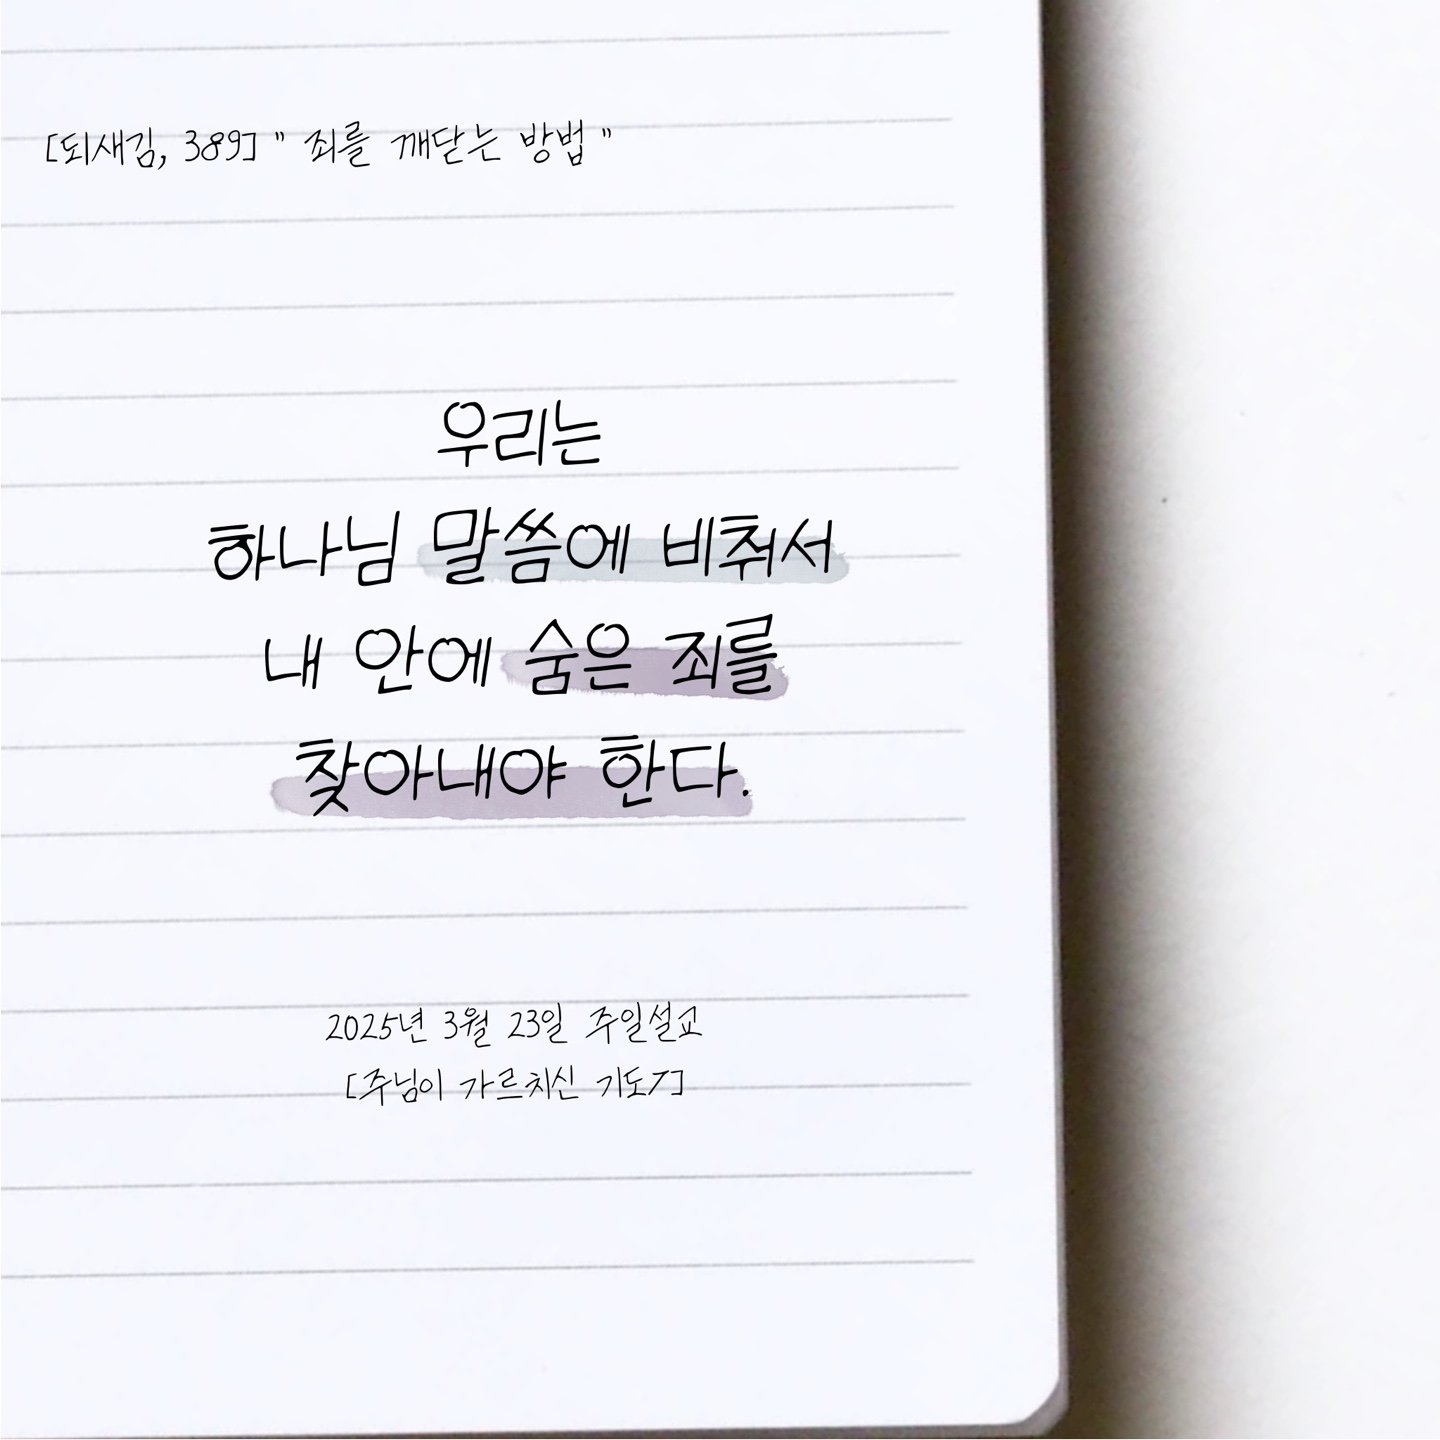 [되새김, 389] " 죄를 깨닫는 방법 "
우리는
하나님 말씀에 비춰서
내 안에 숨은 죄를
찾아내야 한다.
2025년 3월 23일 주일설교
[주님이 가르치신 기도7]